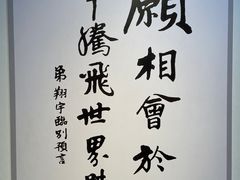 願相會於
騰飛世界
弟翔宇臨別預言